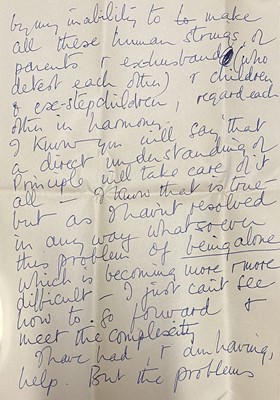 by my inability to to make
all these human strings, of
parents & exhusband (who
detest each other) & children
& ex-stepchildren, regard each
other in harmony.
I know you will say that
a direct understanding of
Principle will take care of it
all – I know that is true –
but as I havn't resolved
in any way whatsoever
this problem of being alone
which is becoming more & more
difficult – I just can't see
how to go forward &
meet the complexity
I have had, & am having,
help. But the problems